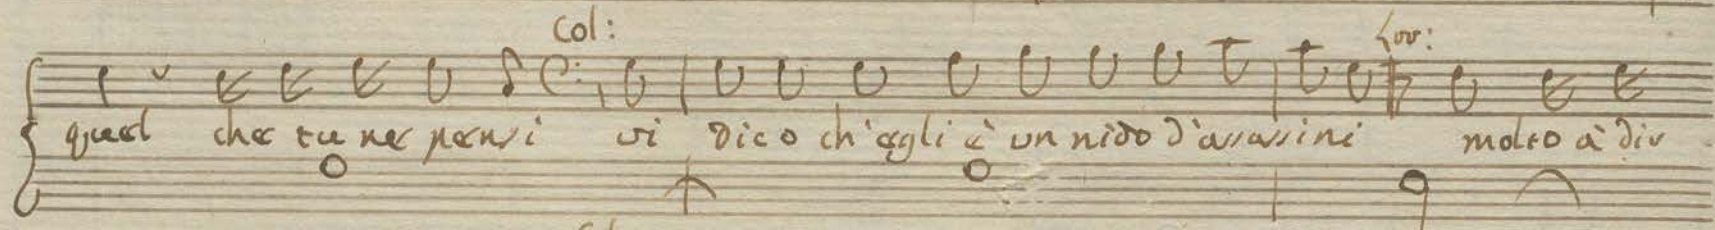 Col: Lov:
quel che tu ne pensi vi dico ch'egli è un nido d'asassini molto à dir